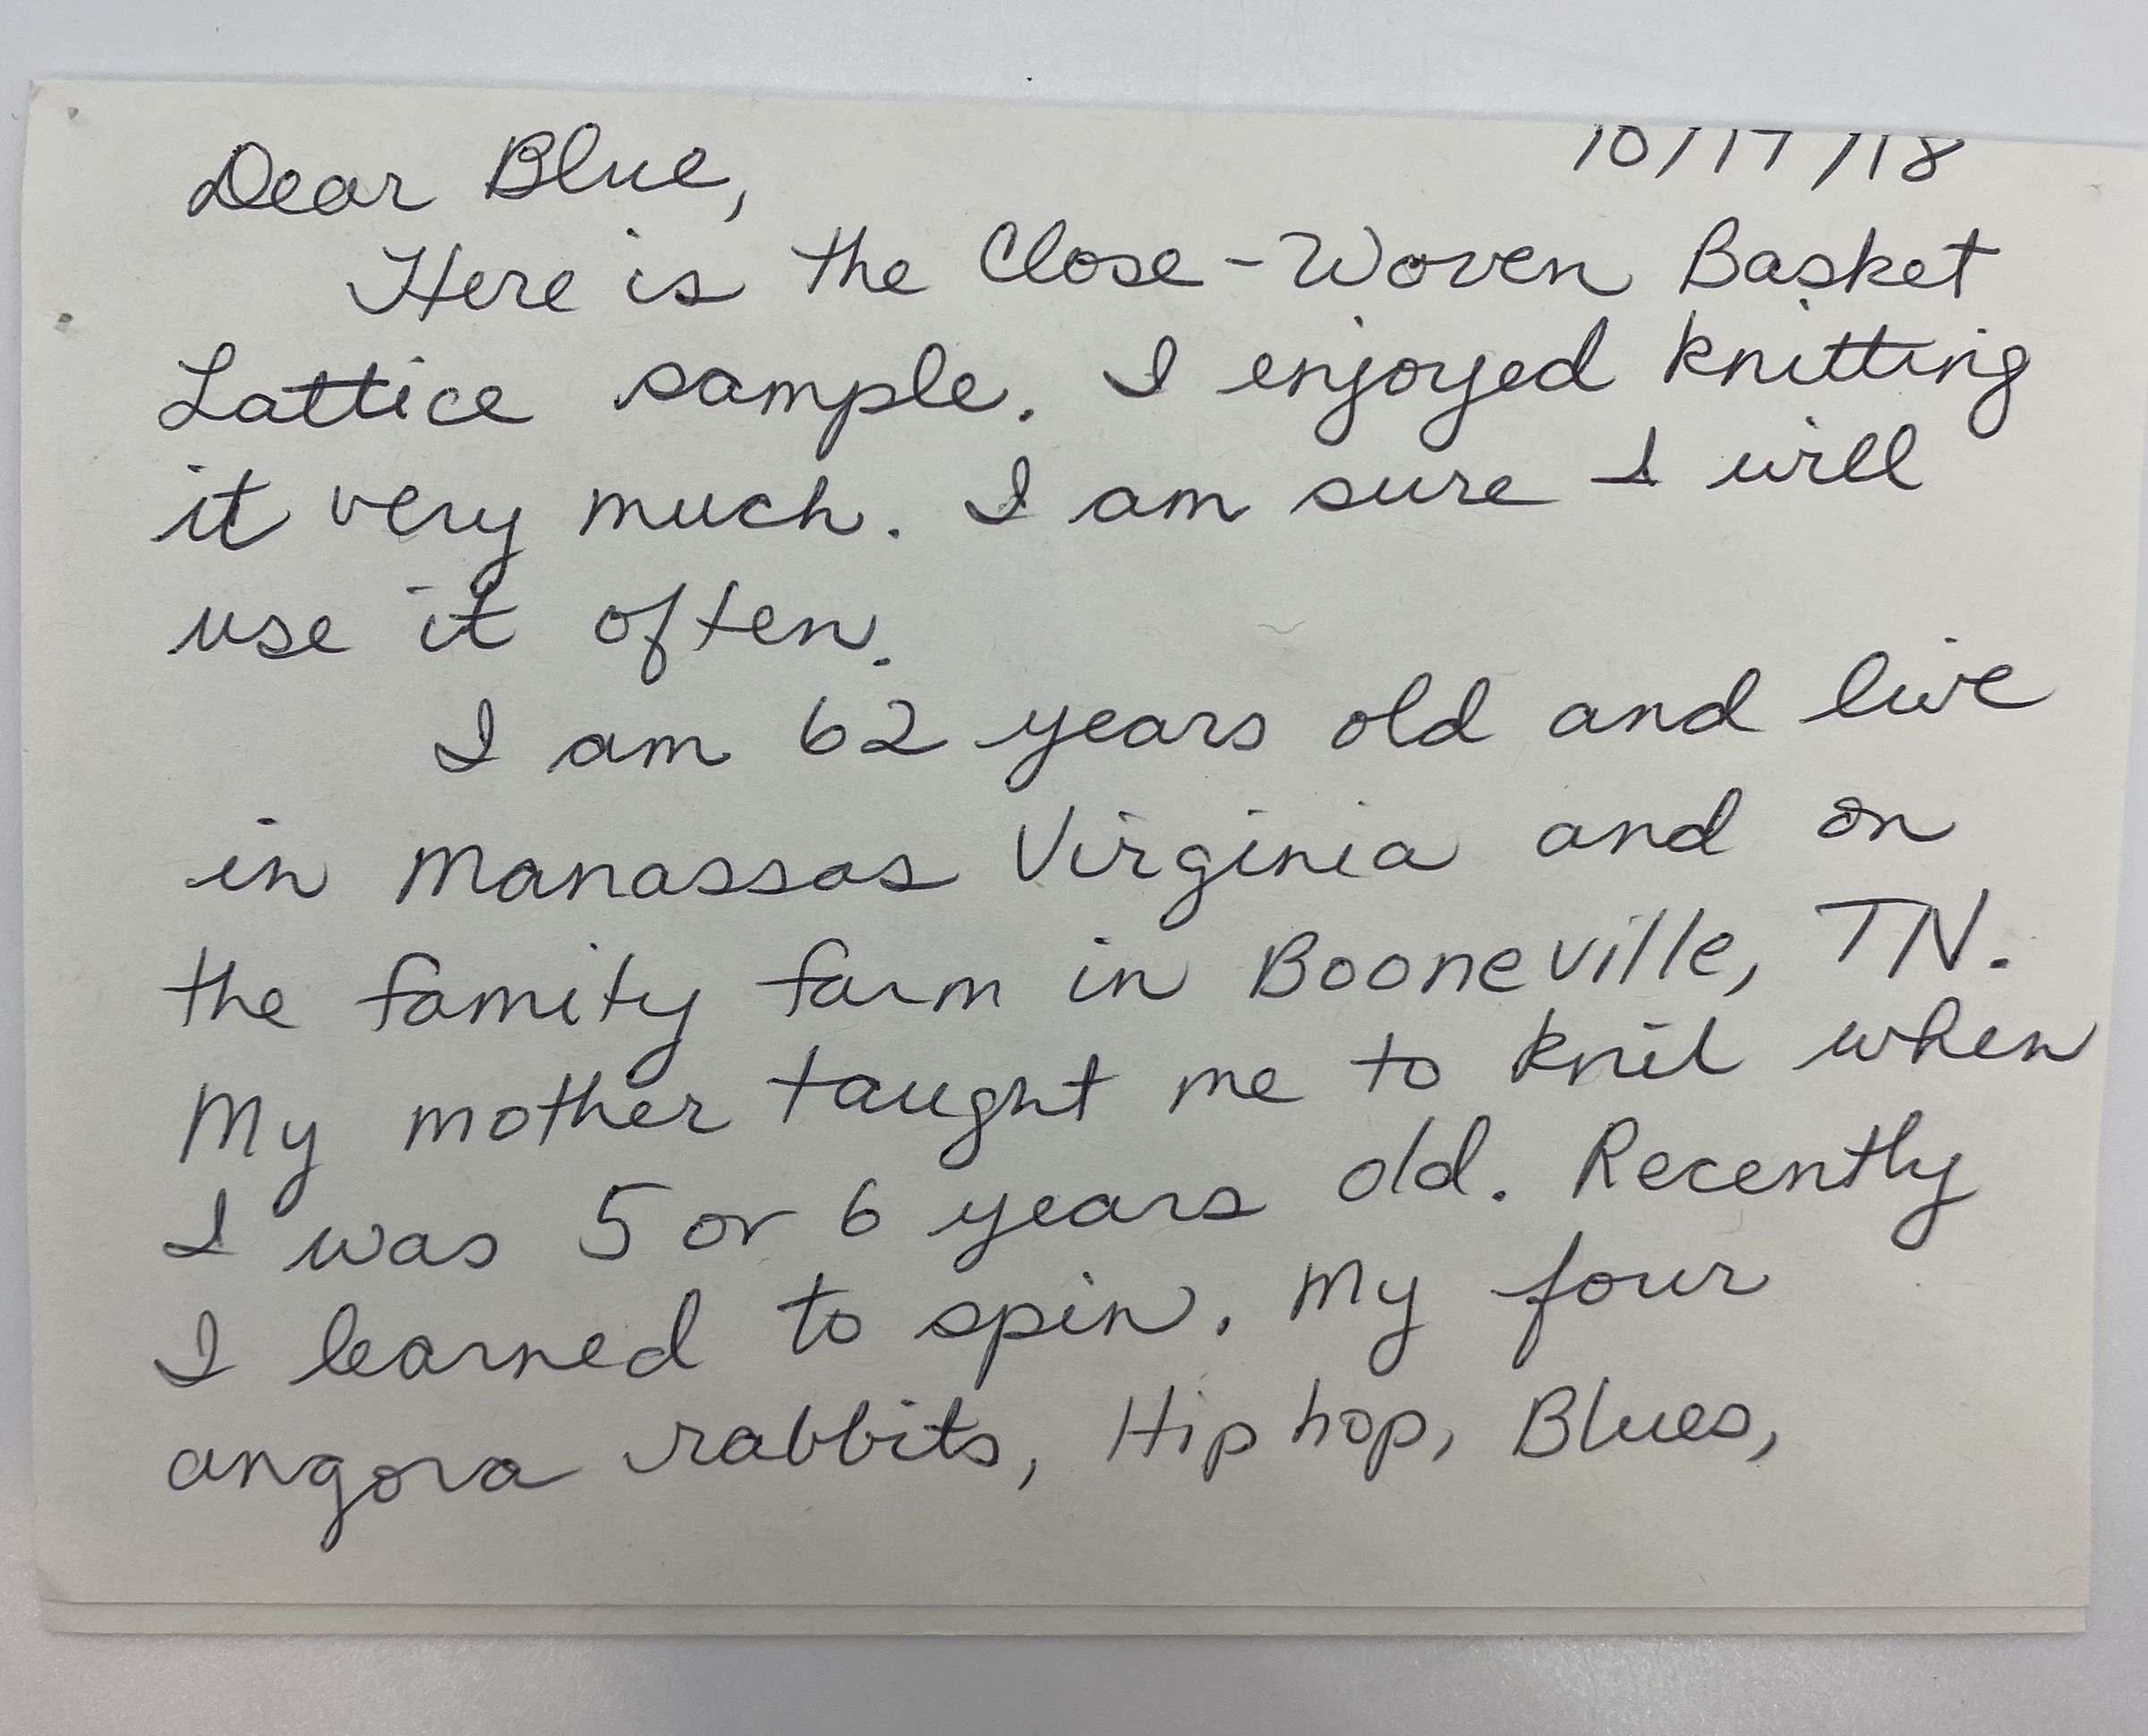 10/17/18
Dear Blue,
Here is the Close-Woven Basket
Lattice sample. I enjoyed knitting
it very much. I am sure I will
use it often.
I am 62 years old and live
in Manassas Virginia and on
the family farm in Booneville, TN.
My mother taught me to knit when
I was 5 or 6 years old. Recently
I learned to spin. My four
angora rabbits, Hip hop, Blues,